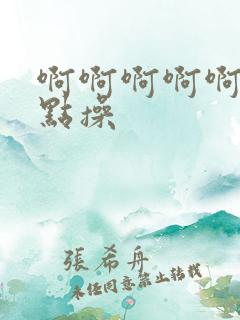 啊啊啊啊啊
點操
張希舟
未任同意禁止轉載